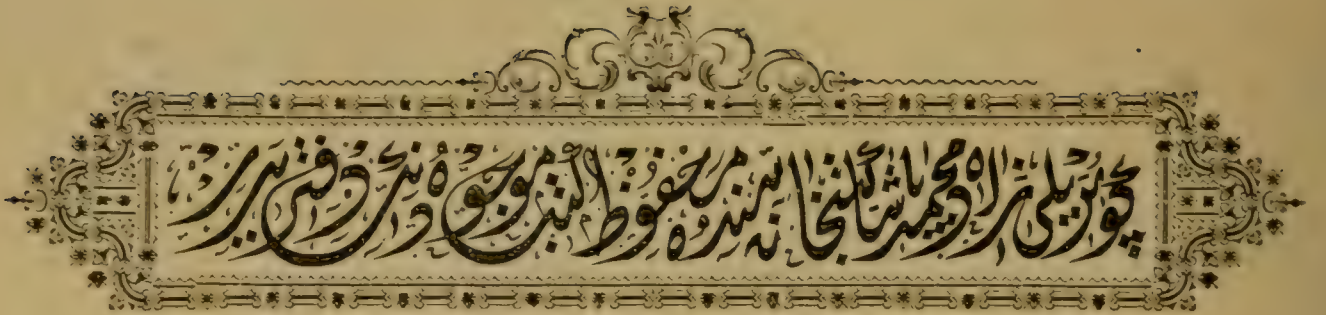 كوپريلى زاده محمد پاشا كتبخانه سنده محفوظ كتب موجوده نك دفتريدر